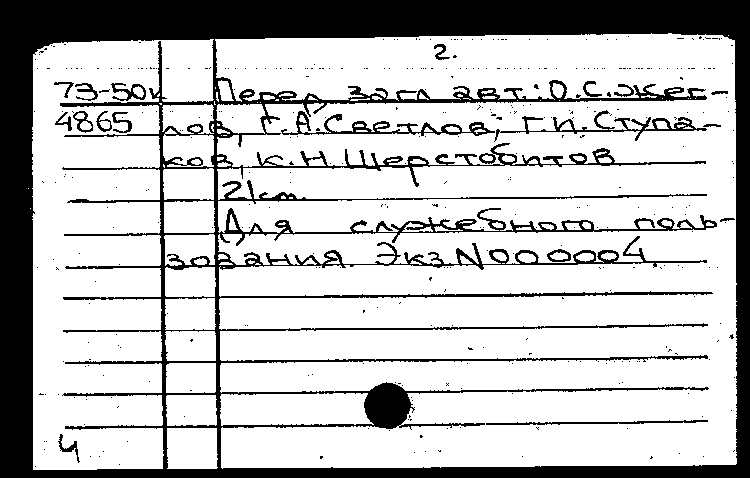 2.
73-50к Перед загл авт.: О.С.Жег-
4865 лов, Г.А.Светлов, Г.И.Ступа-
ков, К.Н.Шерстобитов
21см.
Для служебного поль-
зования. Экз.N000004.
Ч